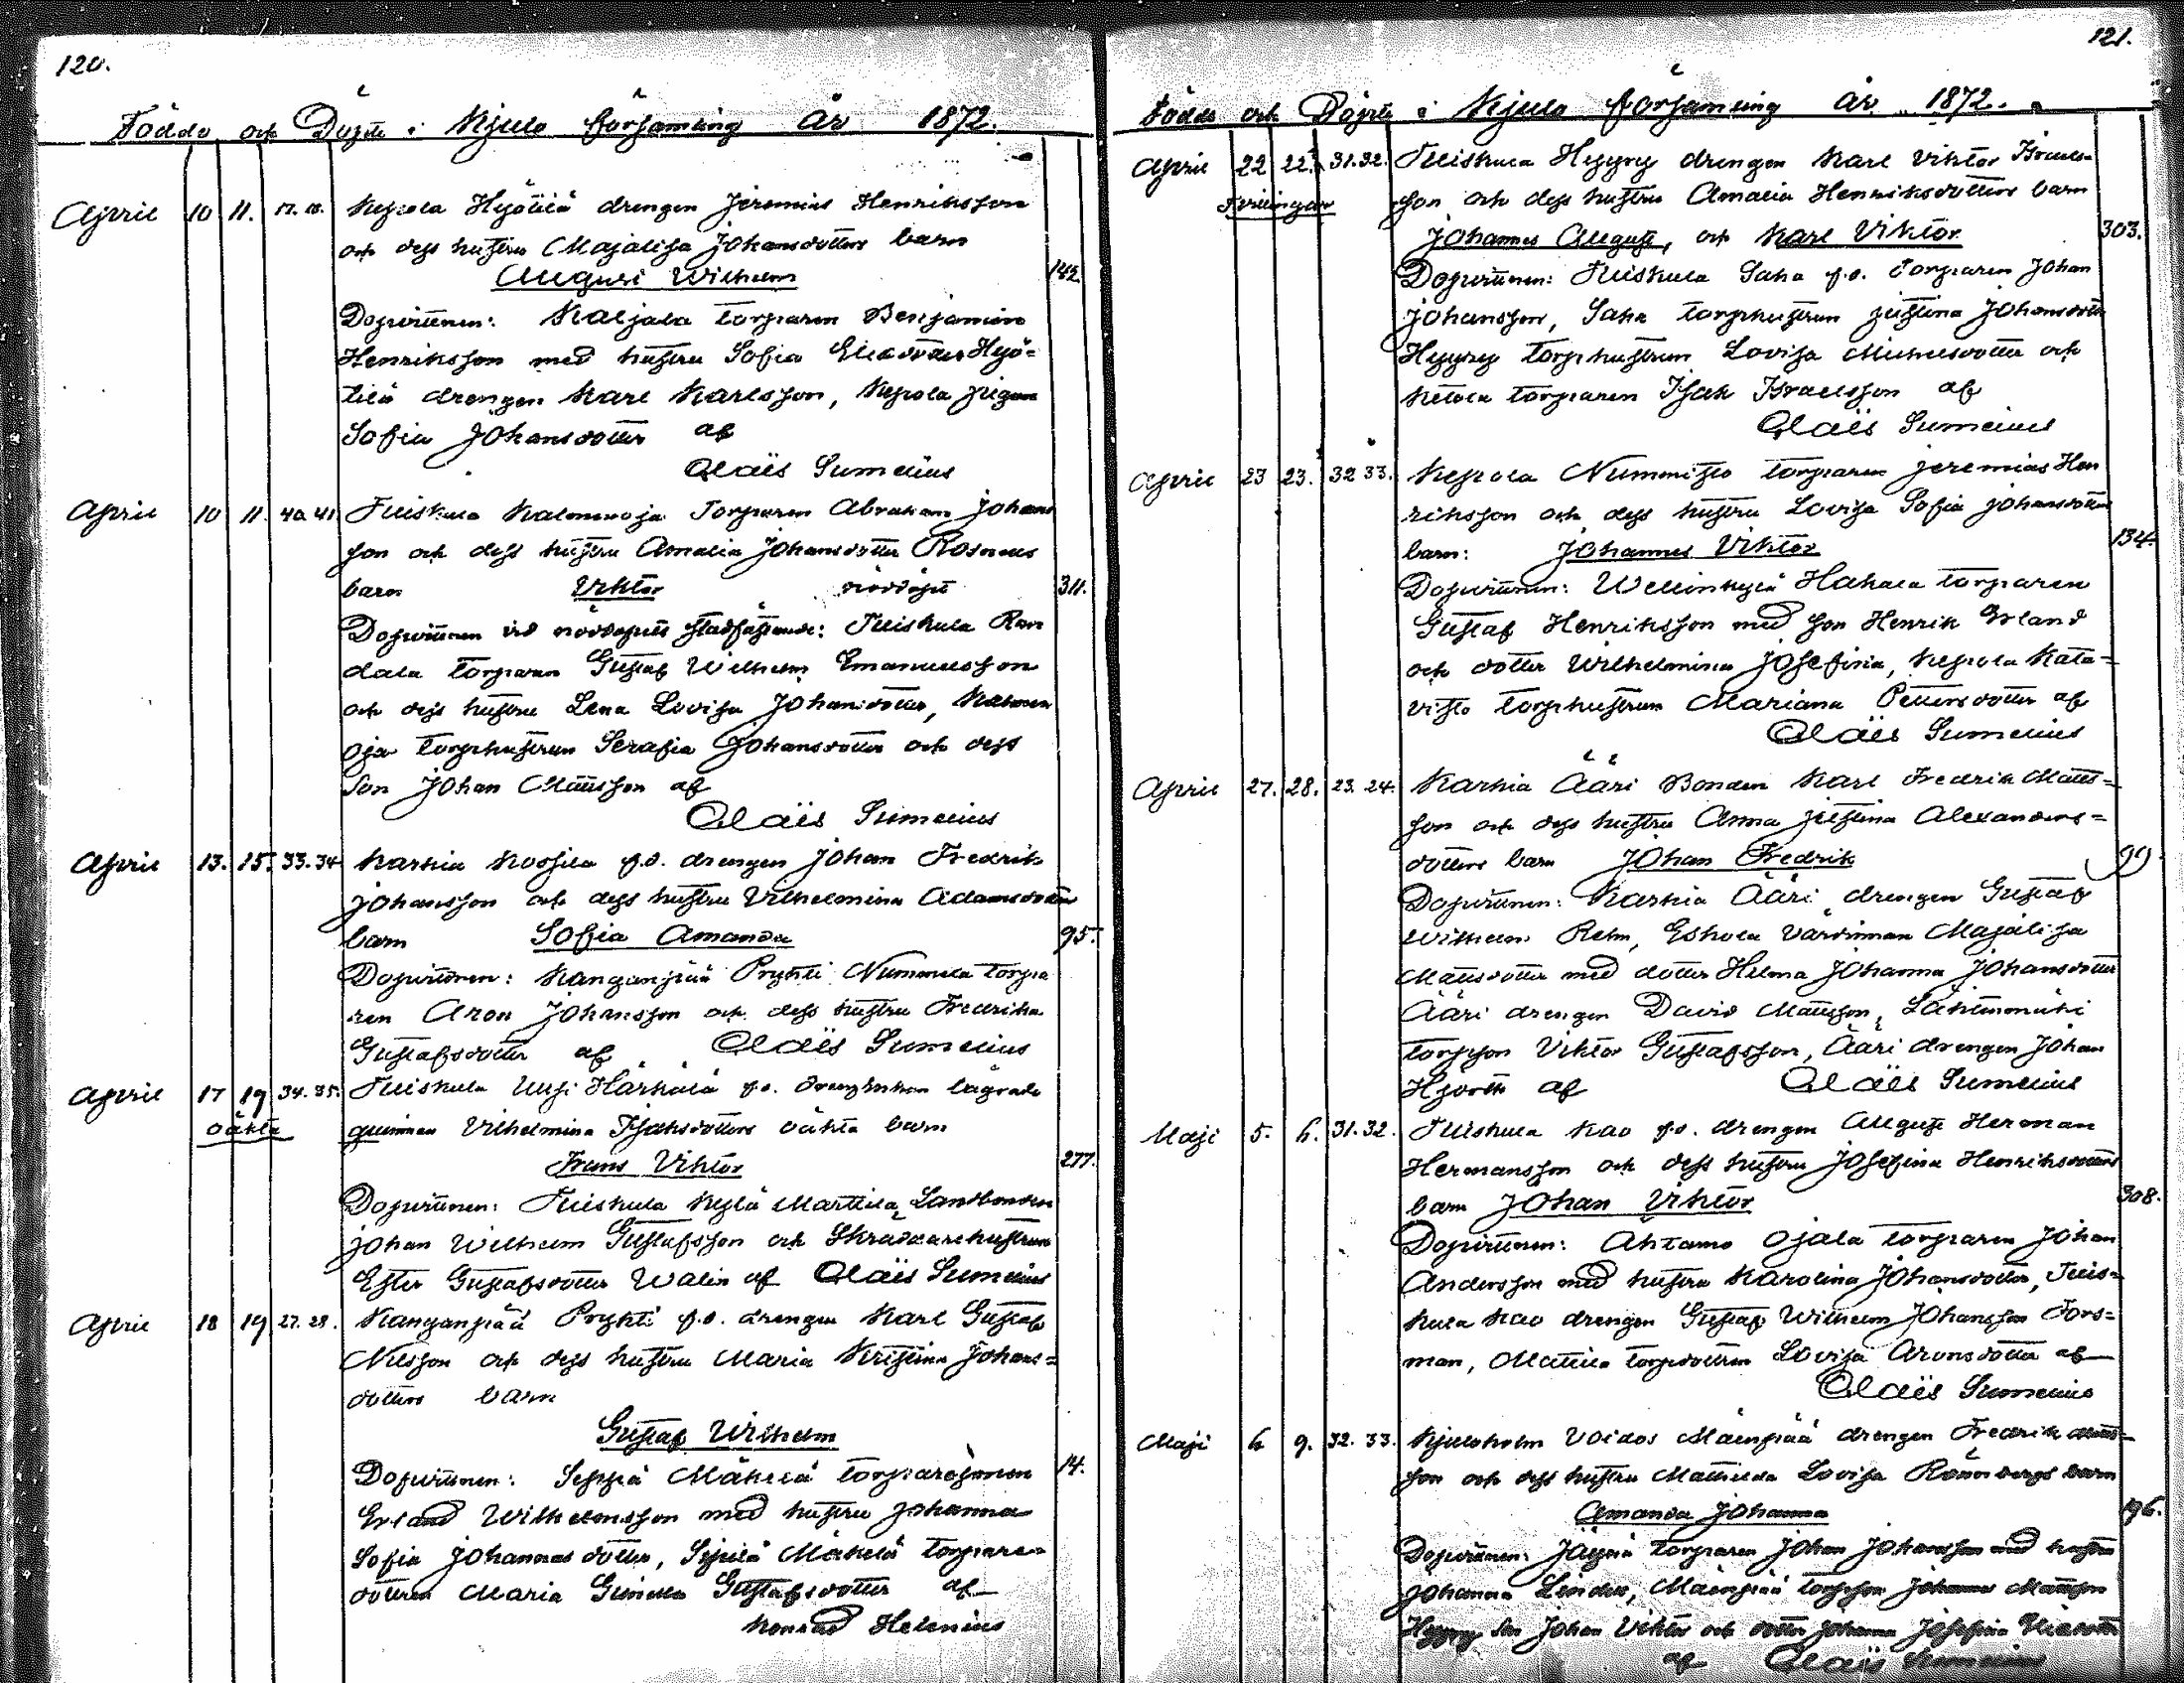 120.
Födde och Döpte i Kjulo församling År 1872.
April 10 11. 17.18. Kepola Hyötilä drengen Jeremias Henriksson
och dess hustru Majalisa Johansdotters barn
August Wilhelm 142
Dopvittnen: Karjala torparen Benjamin
Henriksson med hustru Sofia Eliædotter Hyö-
tilä drengen Karl Karlsson, Kepola pigan
Sofia Johansdotter af
Claës Sumelius
April 10 11. 40.41 Tuiskula Kalmenoja Torparen Abraham Johans
son och dess hustru Amalia Johansdotter Rosneus
barn Viktor nöddöpt 311.
Dopvittnen vid nöddopets stadfästande: Tuiskula Ran
dala torparen Gustaf Wilhelm Emanuelsson
och dess hustru Lena Lovisa Johansdotter, Kalmen
oja torphustrun Serafia Johansdotter och dess
Son Johan Mattsson af
Claës Sumelius
April 13. 15. 33.34 Karhia Kossila f.d. drengen Johan Fredrik
Johansson och dess hustru Vilhelmina Adamsdotters
barn Sofia Amanda 95.
Dopvittnen: Kanganpää Prykti Nummela torpa
ren Aron Johansson och dess hustru Fredrika
Gustafsdotter af Claës Sumelius
April 17 19 34.35. Tuiskula Uusi Härkälä f.d. lägrade
oäkta qvinnan Vilhelmina Isaksdotters oäkta barn
Frans Viktor 277.
Dopvittnen: Tuiskula Kylä Marttila Landbonden
Johan Wilhelm Gustafsson och Skräddarehustrun
Ester Gustafsdotter Walin af Claës Sumelius
April 18 19 27.28. Kanganpää Prykti f.d. drengen Karl Gustaf
Nilsson och dess hustru Maria Kristina Johans-
dotters barn
Gustaf Wilhelm
Dopvittnen: Seppä Mäkelä torparesonen 14.
Erland Wilhelmsson med hustru Johanna
Sofia Johannasdotter, Mäkelä torpare-
dottren Maria Gunilla Gustafsdotter af
Konrad Helenius
121.
Födde och Döpte i Kjulo församling År 1872.
April 22 22. 31.32. Tuiskula Hyyry drengen Karl Viktor Israels-
Tvillingar son och dess hustru Amalia Henriksdotters barn
Johannes August, och Karl Viktor 303.
Dopvittnen: Tuiskula Saha f.d. torparen Johan
Johansson, Saha torphustrun Justina Johansdotter
Hyyry torphustrun Lovisa Michelsdotter och
Ketola torparen Isak Israelsson af
Claës Sumelius
April 23 23. 32 33. Kepola Nummisto torparen Jeremias Hen
riksson och dess hustru Lovisa Sofia Johansdotters
barn: Johannes Viktor 134.
Dopvittnen: Wellinkylä Hakala torparen
Gustaf Henriksson med son Henrik Erland
och dotter Wilhelmina Josefina, Kepola Kata-
visto torphustrun Mariana Pettersdotter af
Claës Sumelius
April 27. 28. 23.24. Karhia Ääri Bonden Karl Fredrik Matts-
son och dess hustru Anna Justina Alexanders-
dotters barn Johan Fredrik 99.
Dopvittnen: Karhia Ääri drengen Gustaf
Wilhelm Rehn, Eskola värdinnan Majalisa
Mattsdotter med dotter Helma Johanna Johansdotter
Ääri drengen David Mattsson, Lähtinmäki
torpson Viktor Gustafsson, Ääri drengen Johan
Hjorth af Claës Sumelius
Maji 5. 6. 31.32. Tuiskula Kao f.d. drengen August Herman
Hermansson och dess hustru Josefina Henriksdotters
barn Johan Viktor 308.
Dopvittnen: Ahtamo Ojala torparen Johan
Andersson med hustru Karolina Johansdotter, Tuis-
kula Kao drengen Gustaf Wilhelm Johansson Fors-
man, Mattila torpdottren Lovisa Aronsdotter af
Claës Sumelius
Maji 6 9. 32.33. Kjuloholm Voidos Mäenpää drengen Fredrik Matts-
son och dess hustru Mathilda Lovisa Rönnbergs barn
Amanda Johanna 196.
Dopvittnen: torparen Johan Johansson med hustru
Johanna Lindes, Mäenpää torpson Johannes Mattsson
Hyyry Son Johan Viktor och dotter Johanna Josefina
af Claës Sumelius